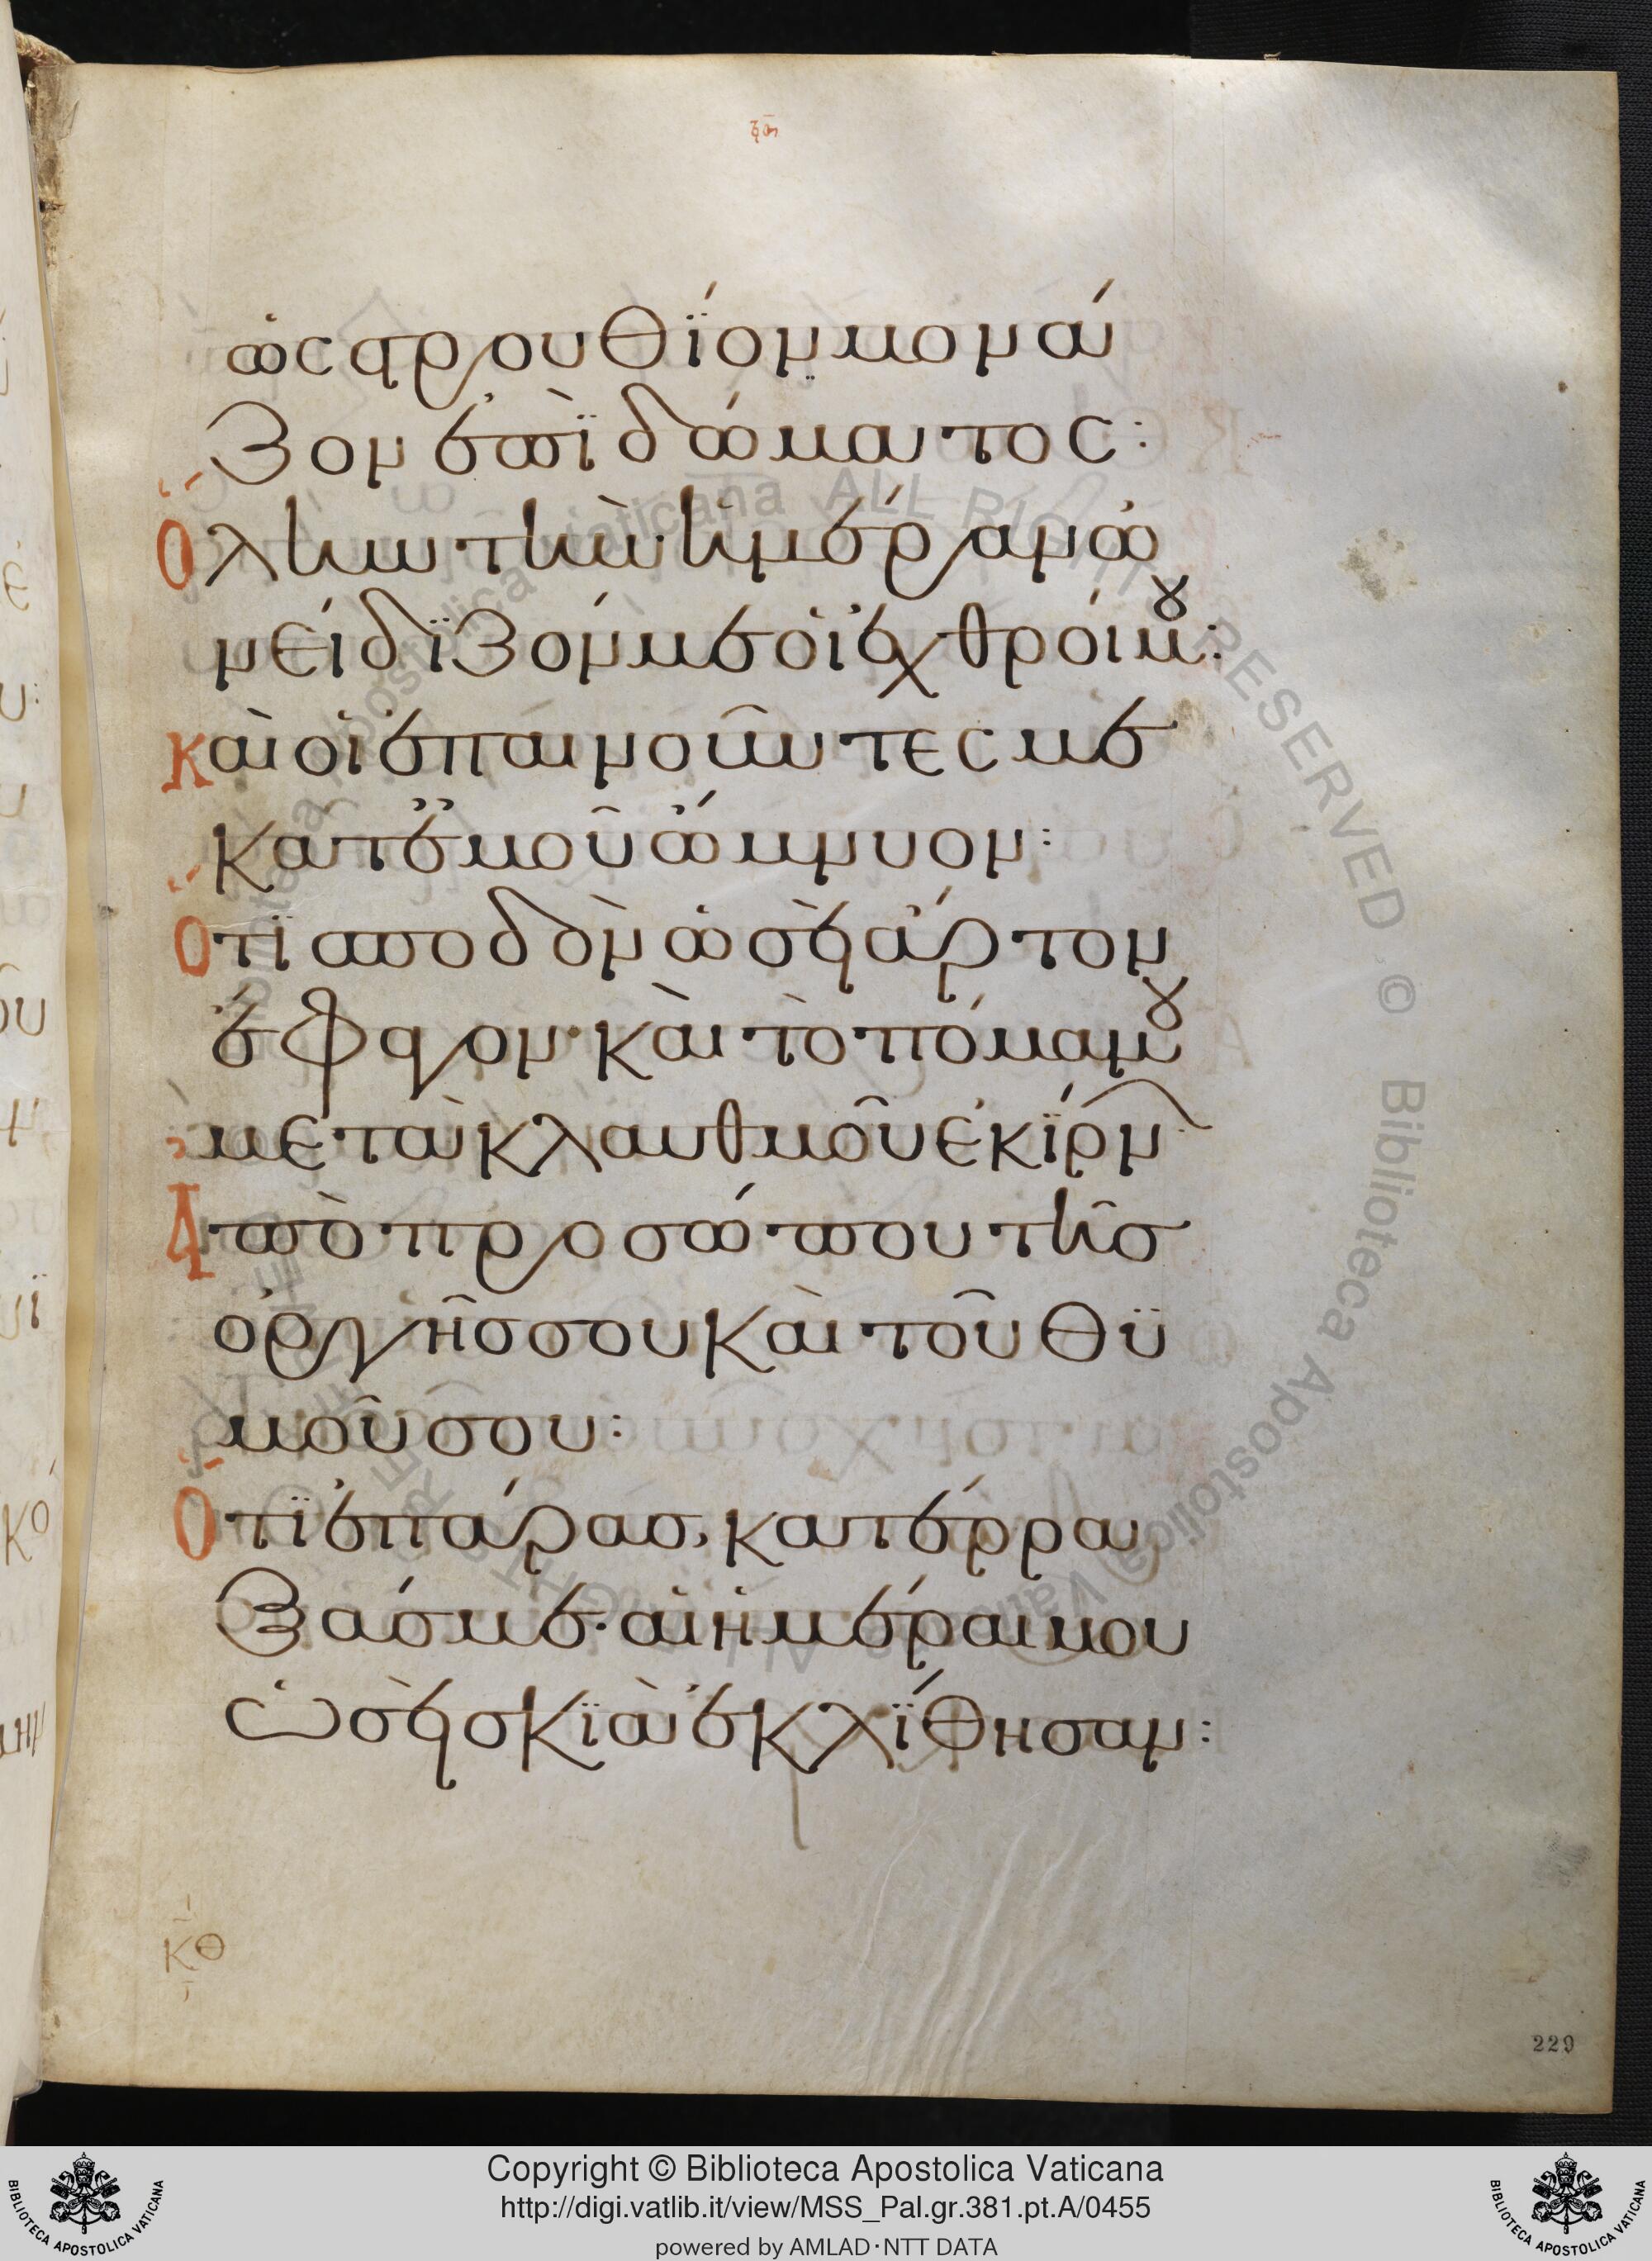 ὡς στρουθϊόν μονά
ζον ἐπὶ̈ δώματος:
Ὅλην τὴν ἡμέραν ὠ
νείδϊζόν με οἱ ἐχθροί μου:
καὶ οἱ ἐπαινοῦντες με
κατ' ἐμοῦ ὤμνυον:
Ὅτϊ σποδὸν ὡσεὶ ἄρτον
ἔφαγον· καὶ τὸ πόμα μου
μετὰ κλαυθμοῦ ἐκΐρνων
Ἀπὸ προσώπου τῆς
ὀργῆς σου καὶ τοῦ θϋ
μοῦ σου:
Ὅτϊ ἐπάρας, κατέρρα
ξάς με· αἱ ἡμέραι μου
ὡσεὶ σκϊὰ ἐκλΐθησαν:
κθ
229
Copyright © Biblioteca Apostolica Vaticana
http://digi.vatlib.it/view/MSS_Pal.gr.381.pt.A/0455
powered by AMLAD·NTT DATA
BIBLIOTECA APOSTOLICA VATICANA
BIBLIOTECA APOSTOLICA VATICANA